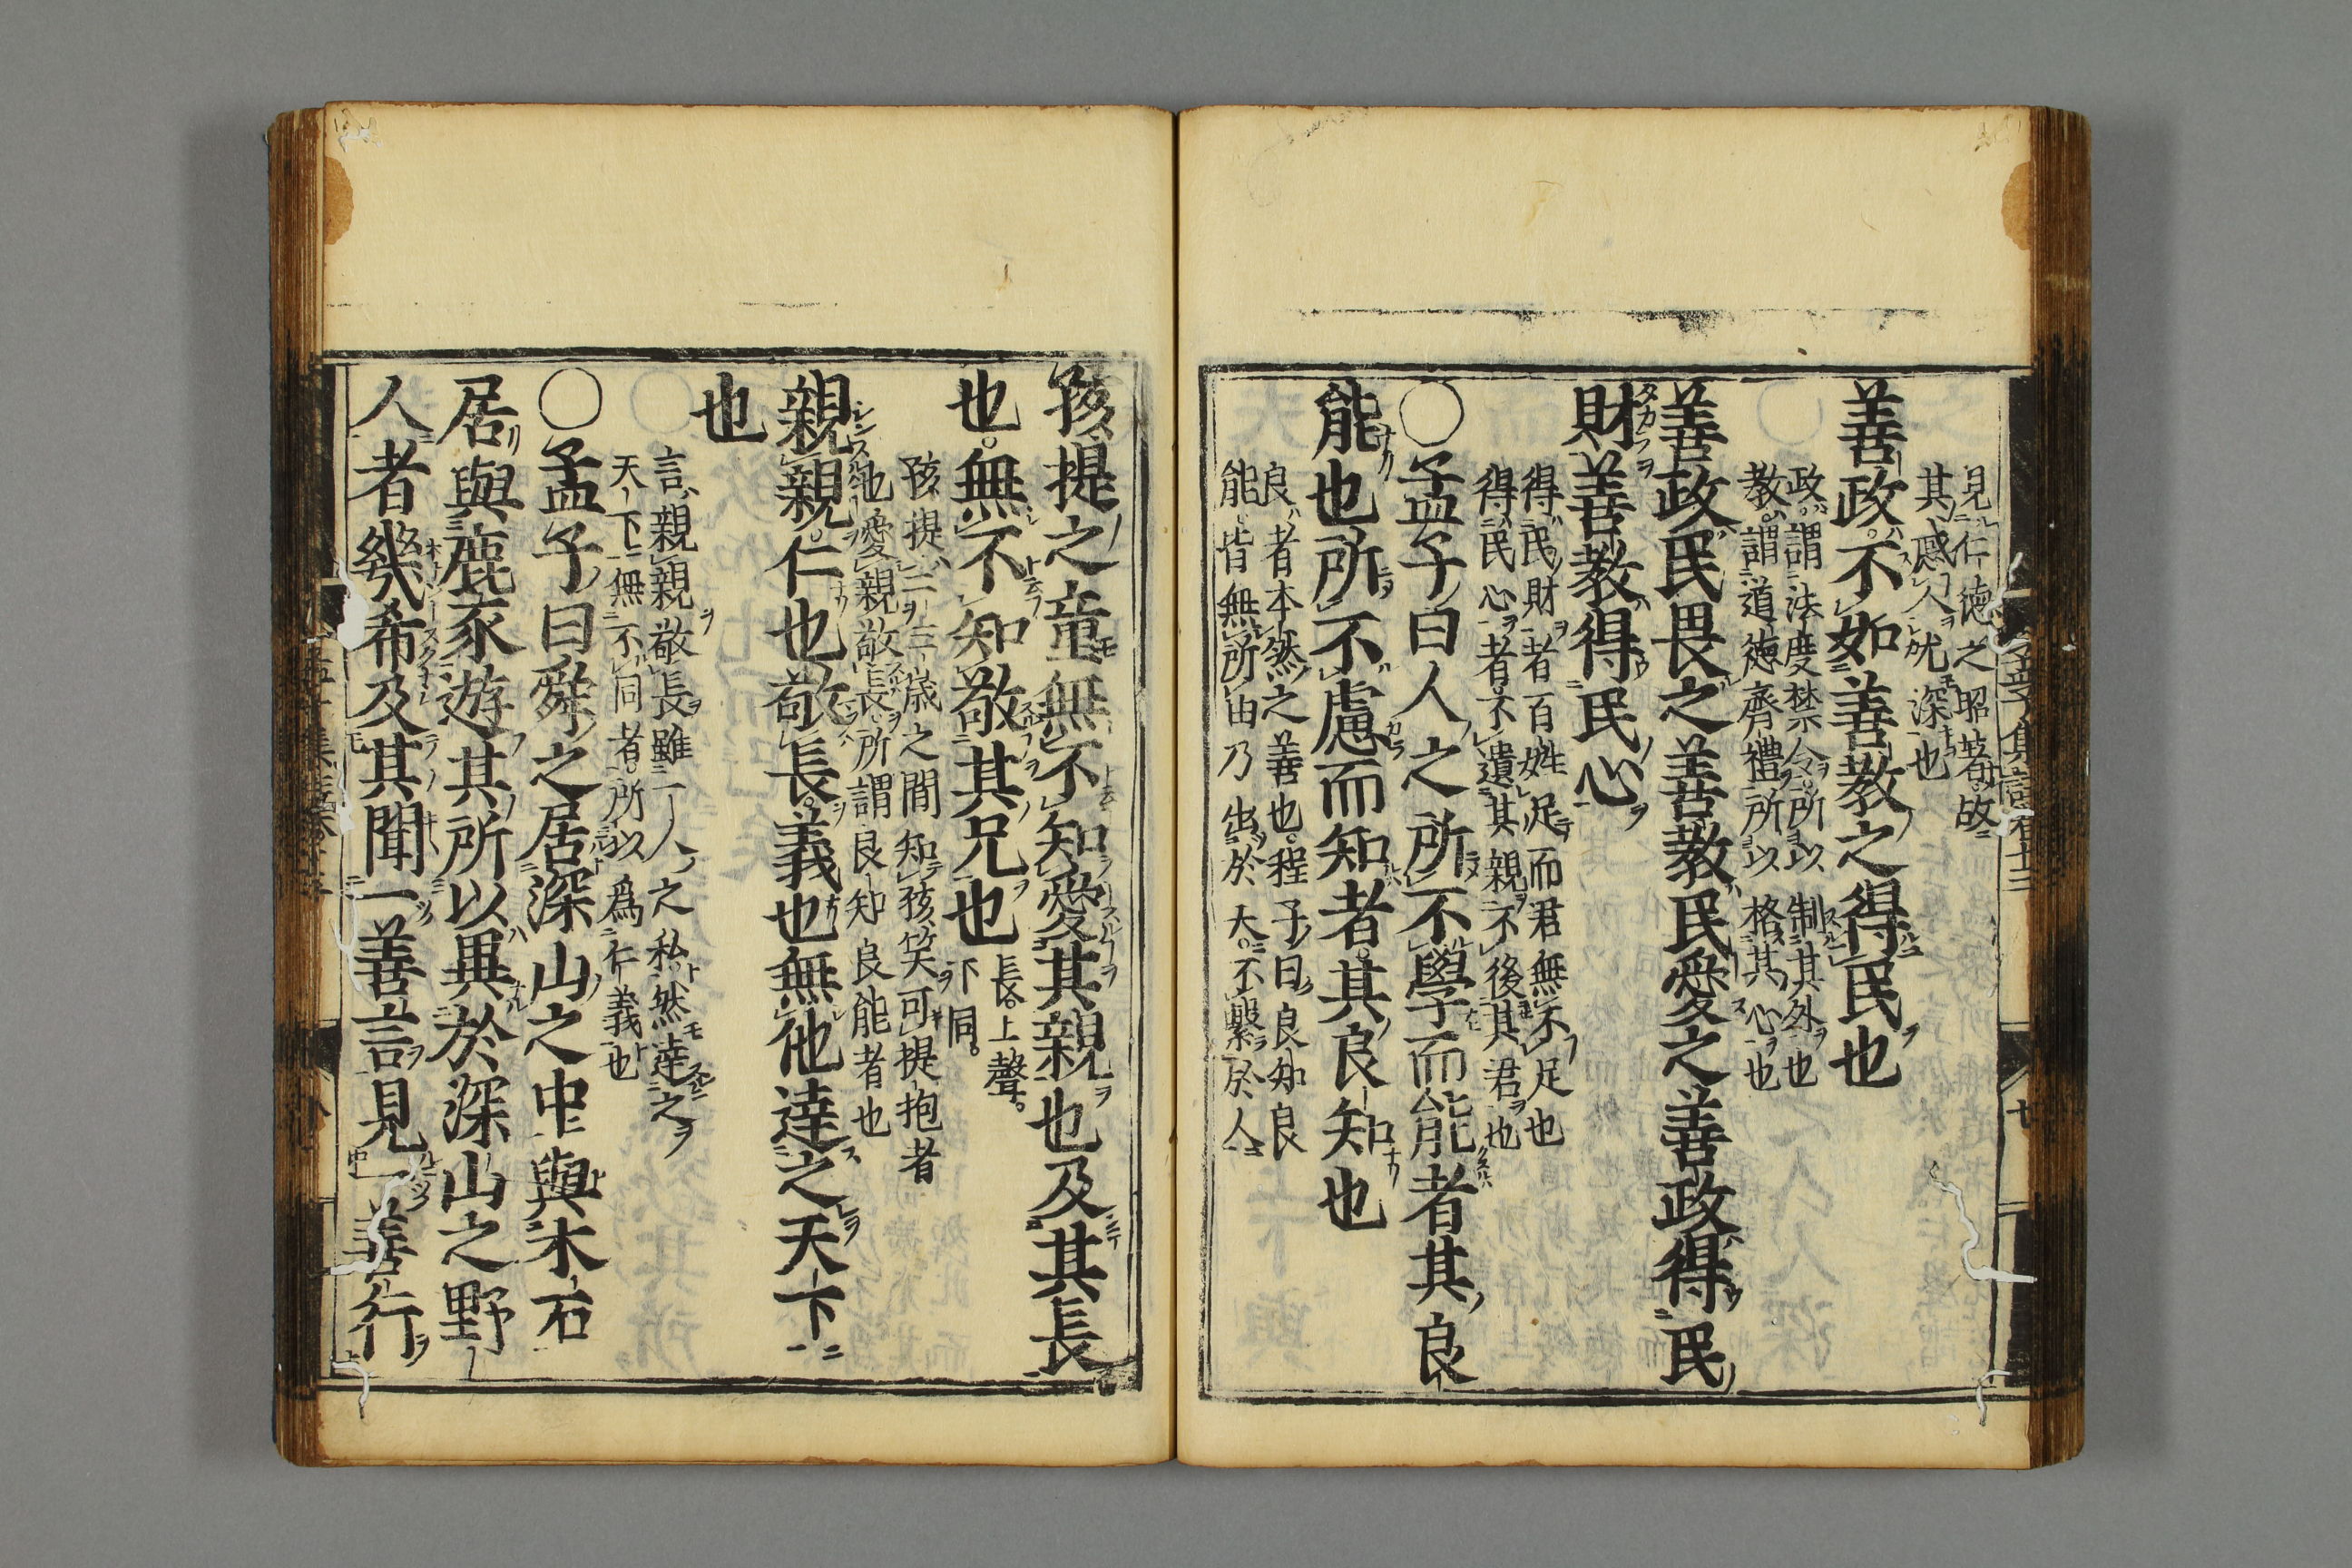 見仁德之昭著。故
其感人尤深也
善政。不如善教之得民也
政。謂法度禁令。所以制其外也
教。謂道德齊禮。所以格其心也
善政民畏之善教民愛之善政得民
財善教得民心
得民財者百姓足而君無不足也
得民心者。不遺其親不後其君也
○孟子曰人之所不學而能者其良
能也所不慮而知者。其良知也
良者本然之善也。程子曰。良知良
能。皆無所由乃出於天。不繫於人
孩提之童無不知愛其親也及其長
也。無不知敬其兄也
長。上聲。
下同。
孩提二三歲之間知孩笑可提抱者
也愛親敬長。所謂良知良能者也
親親。仁也敬長。義也無他達之天下
也
言親親敬長雖一人之私然達之
天下無不同者。所以爲仁義也
○孟子曰舜之居深山之中與木石
居與鹿豕遊其所以異於深山之野
人者幾希及其聞一善言見一善行